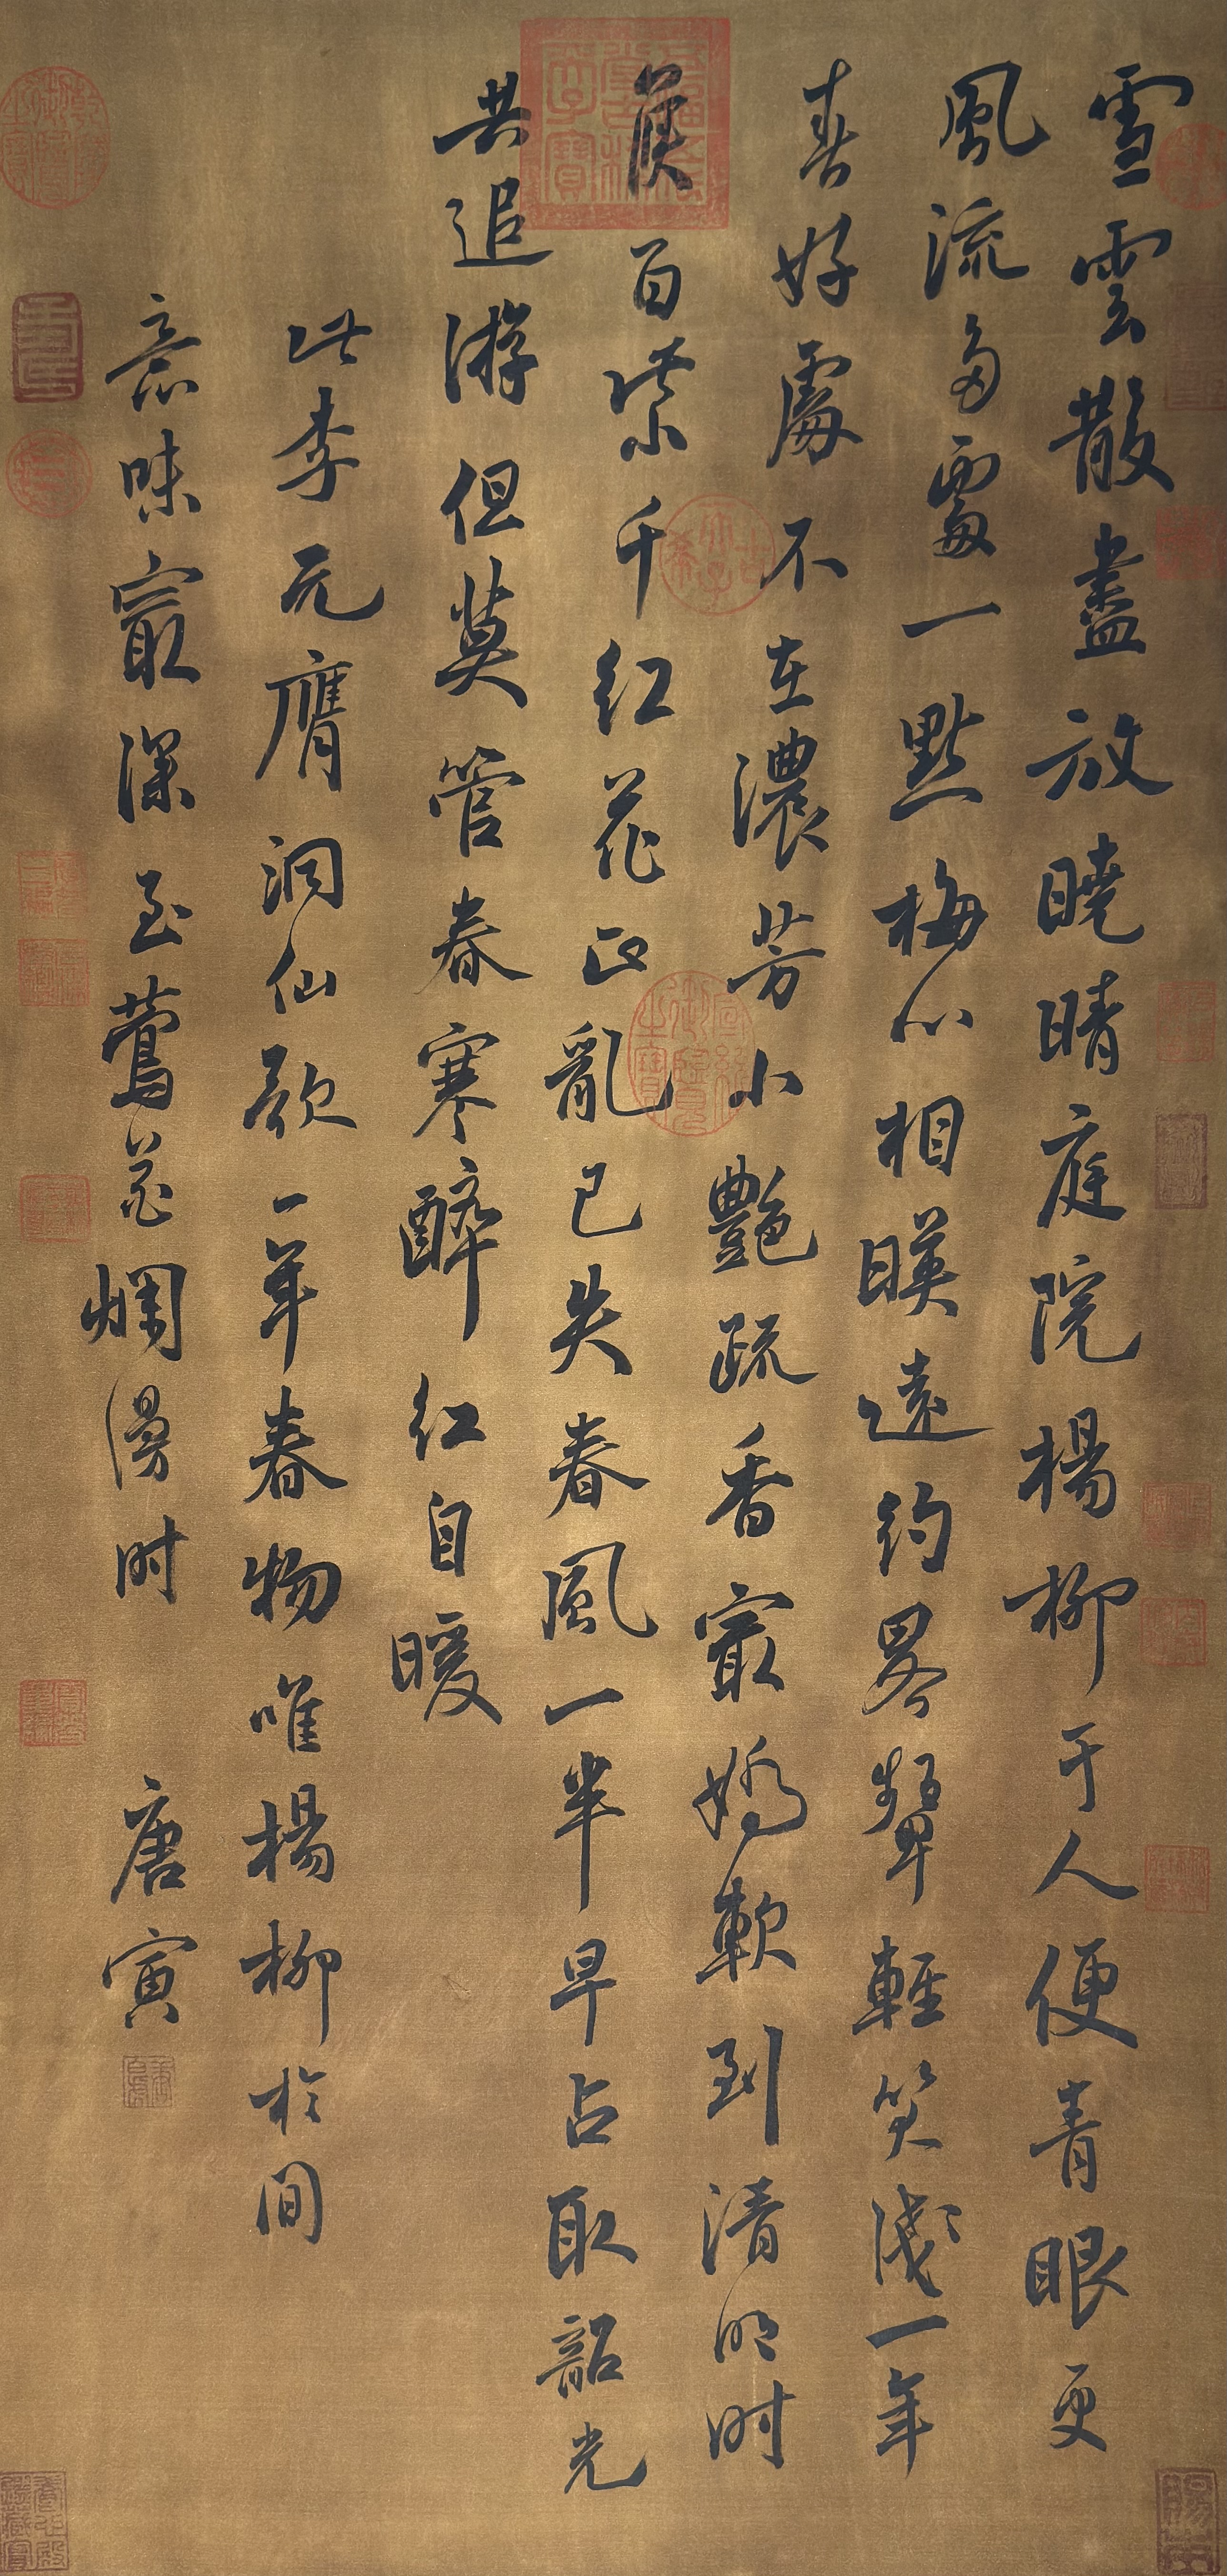 雪雲散盡放曉晴庭院楊柳于人便青眼更
風流多處一點梅心相暎遠約畧顰輕笑淺一年
春好處不在濃芳小艷疏香最嬌軟到清明時
候百紫千紅花正亂已失春風一半早占取韶光
共追游但莫管春寒醉紅自暖
此李元膺洞仙歌一年春物唯楊柳梅間
意味最深至鶯花爛漫時
唐寅